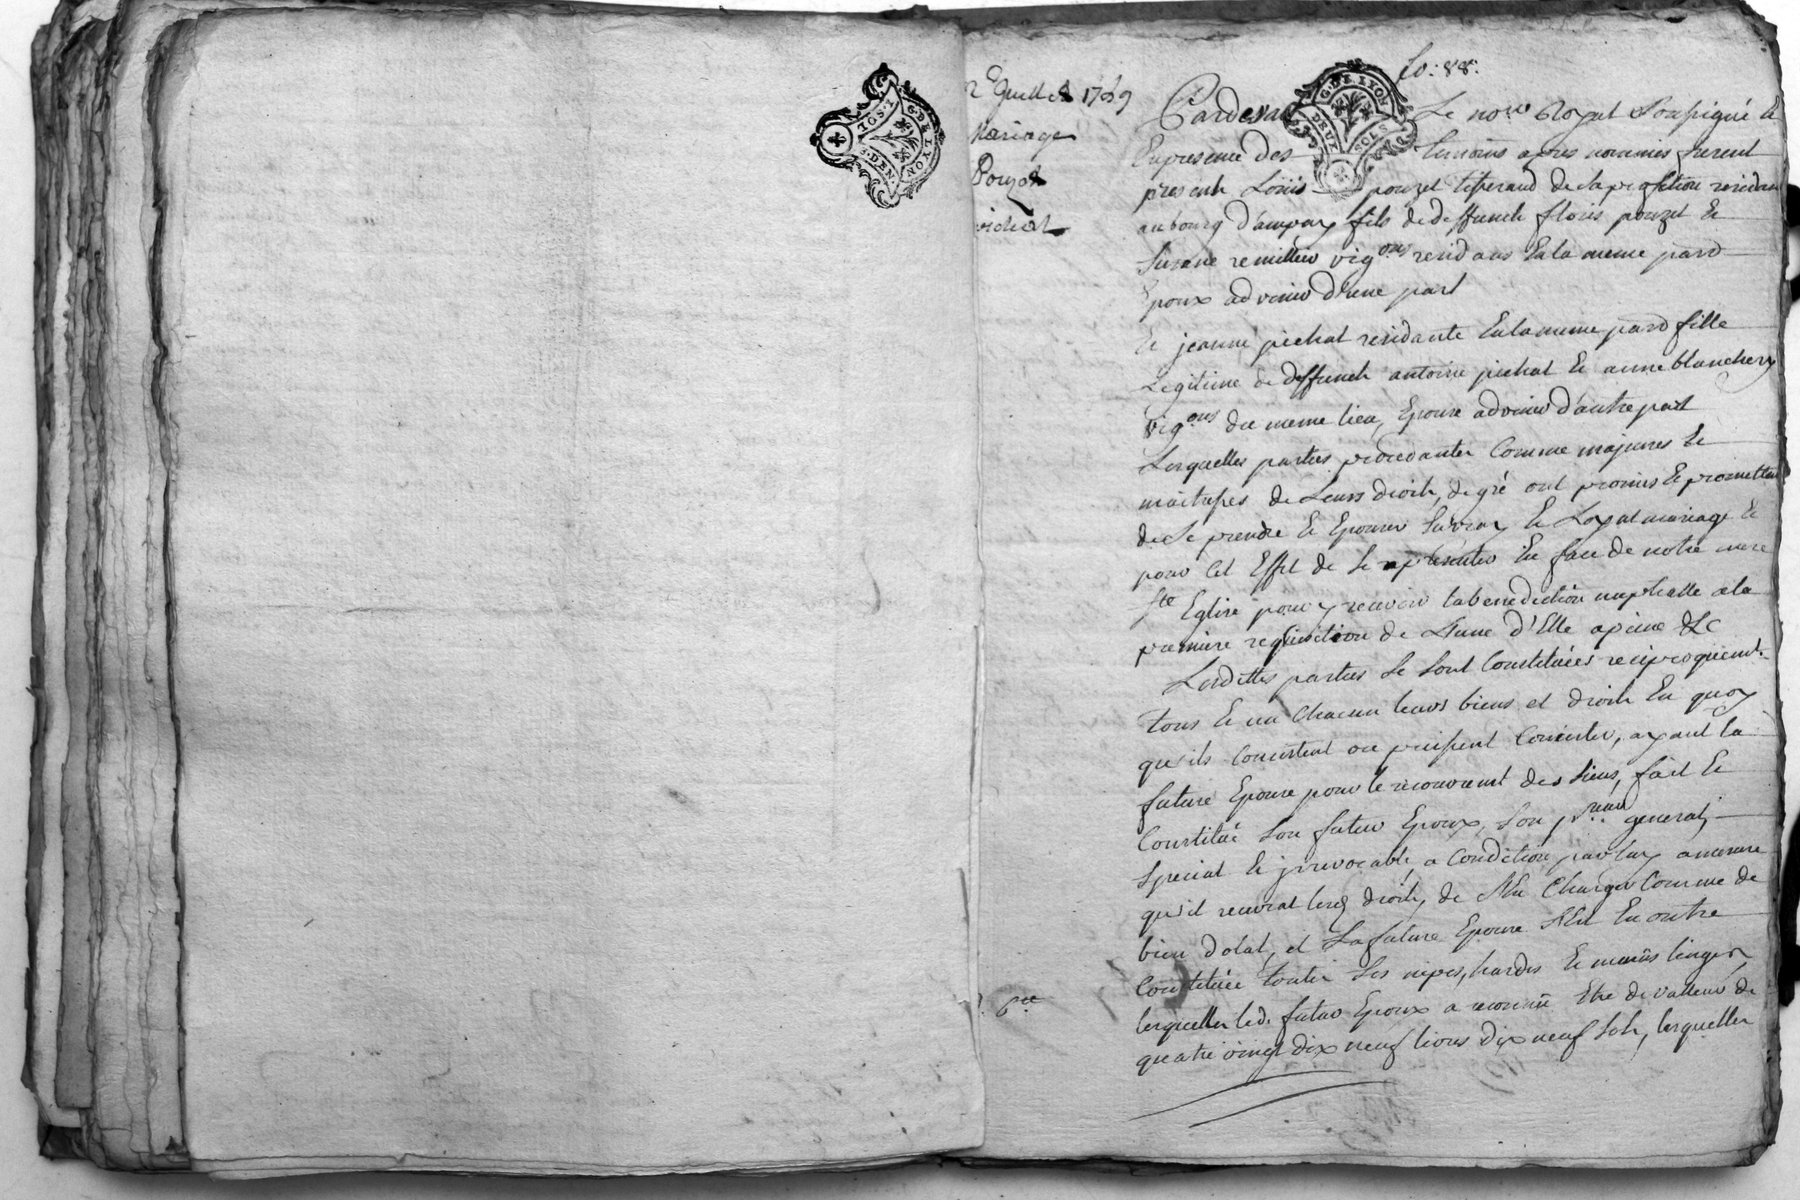 2 SOLS
G. DE LYON
3. DEN.
fo: 88:
2e Juillet 1769
Mariage
Pouzet
pichat
G. DE LYON
DEUX SOLS
Pardevant Le nore Royal Soussigné Et
En presence des temoins apres nommés furent
presents Loüis pouzet tisserand de sa profession residant
au bourg d'ampuy fils de deffuncts floris pouzet Et
Susane remillieu vigons residans En la meme parr
Epoux advenir d'une part
Et jeanne pichat residante En la meme parr fille
Legitime de deffuncts antoine pichat Et anne blanchery
vigons du meme lieu, Epouse advenir d'autre part
Lesquelles parties procedantes Comme majeures Et
maitresses de Leurs droits, de gré ont promis Et promettent
de Se prendre Et Epouser En vray Et Loyal mariage Et
pour Cet Effet de Se presenter En face de notre mere
Ste Eglise pour y recevoir la benediction nuptialle a la
premiere requisition de L'une d'Elle a peine &c
Lesdittes parties Se Sont Constituées reciproquemt
tous Et un Chacun leurs biens et droits En quoy
qu'ils Consistent ou puissent Consister, ayant la
future Epouse pour le recouvremt des Siens, fait Et
Constitué Son futur Epoux, Son preur general,
Special Et jrrevocable, a Condition par luy a mesure
qu'il recevrat lesd droits, de S'En Charger Comme de
bien dotal, et La future Epouse S'Est En outre
Constituée toutes Ses nipes, hardes Et menus linges,
lesquelles led. futur Epoux a reconnu Etre de valleur de
quatre vingt dix neuf livres dix neuf Sols, lesquelles
6tt